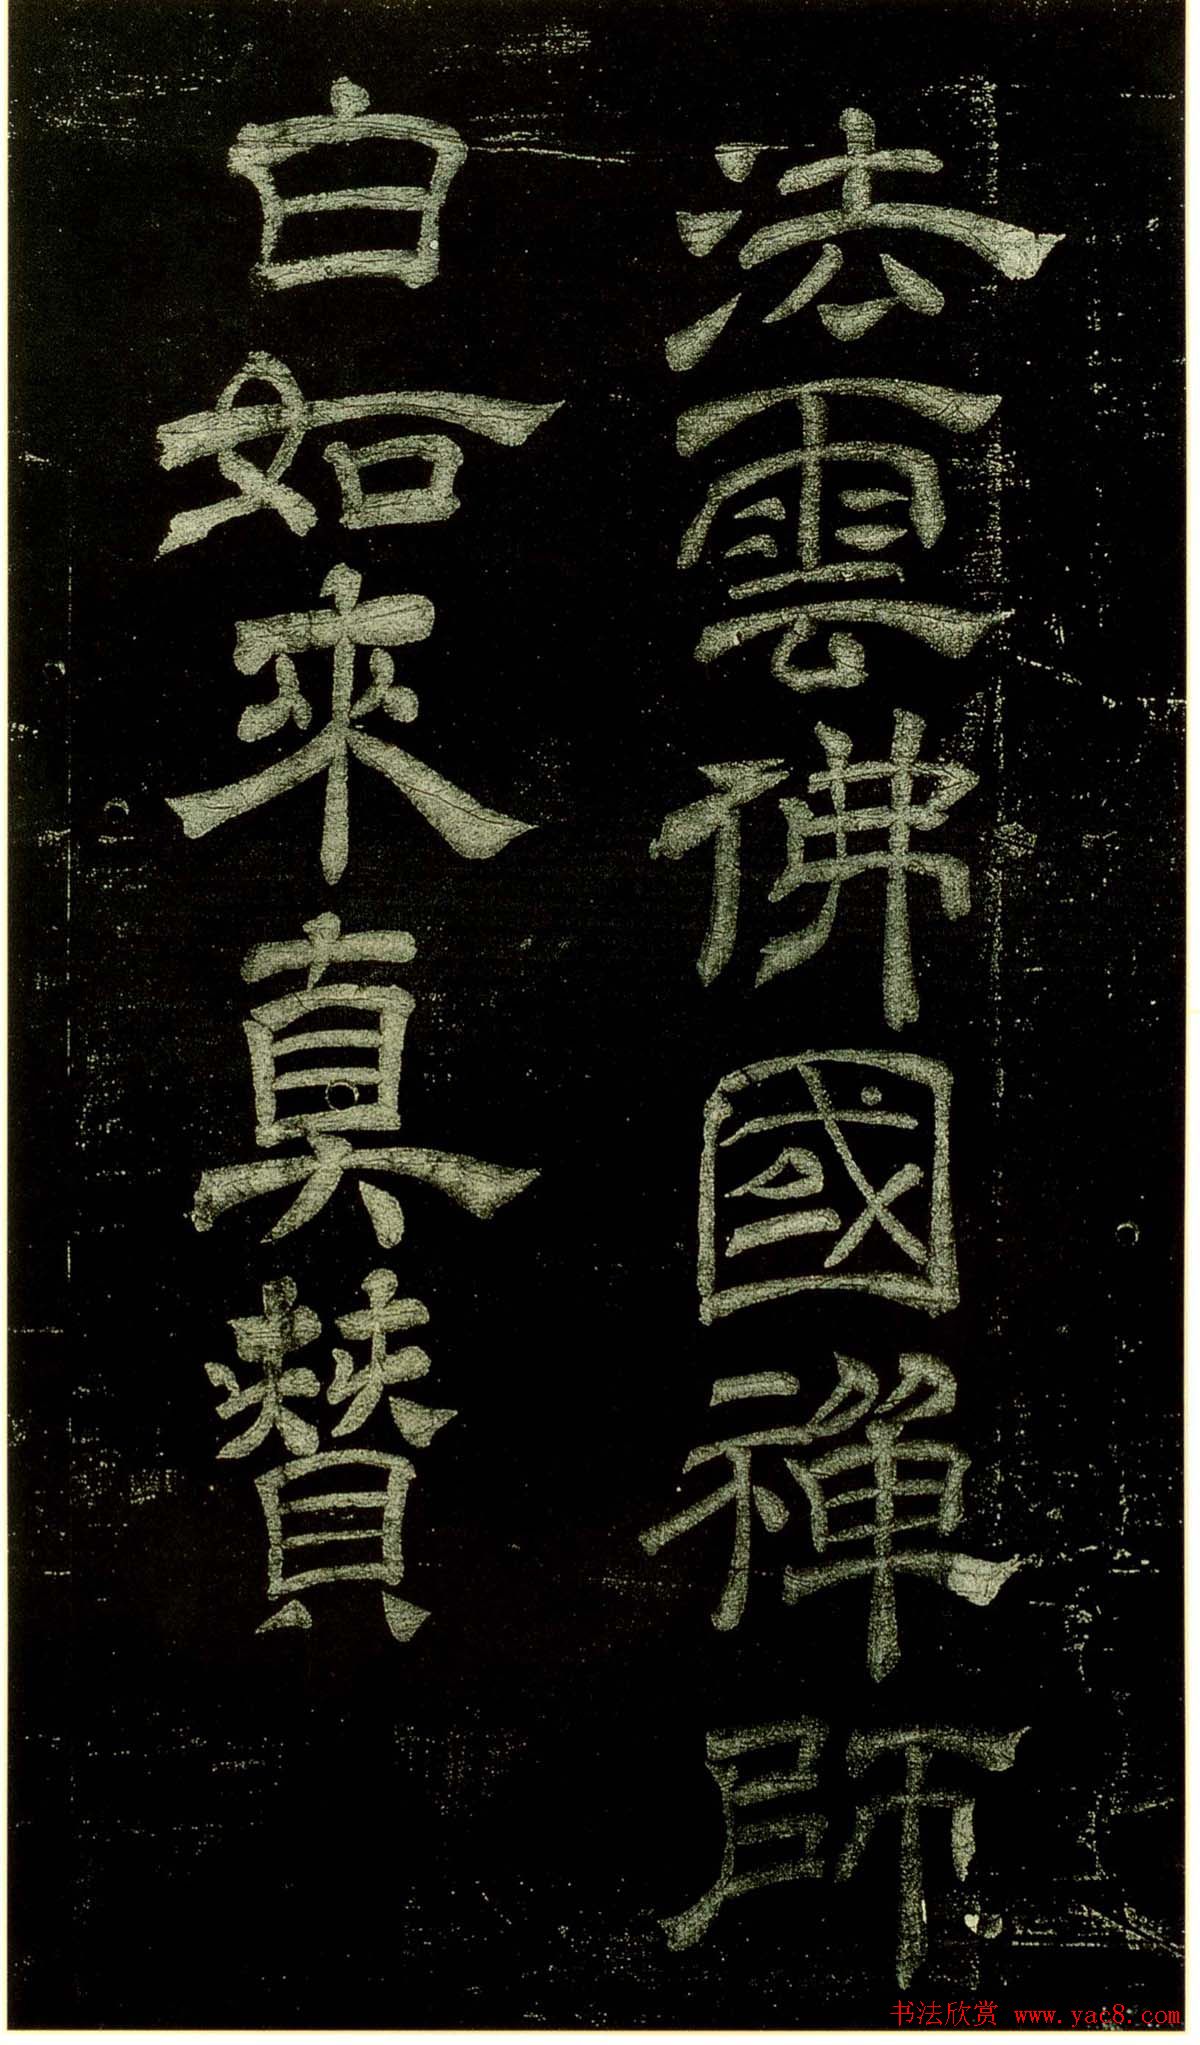 法雲佛國禪師
白如來真贊
书法欣赏 www.yac8.com